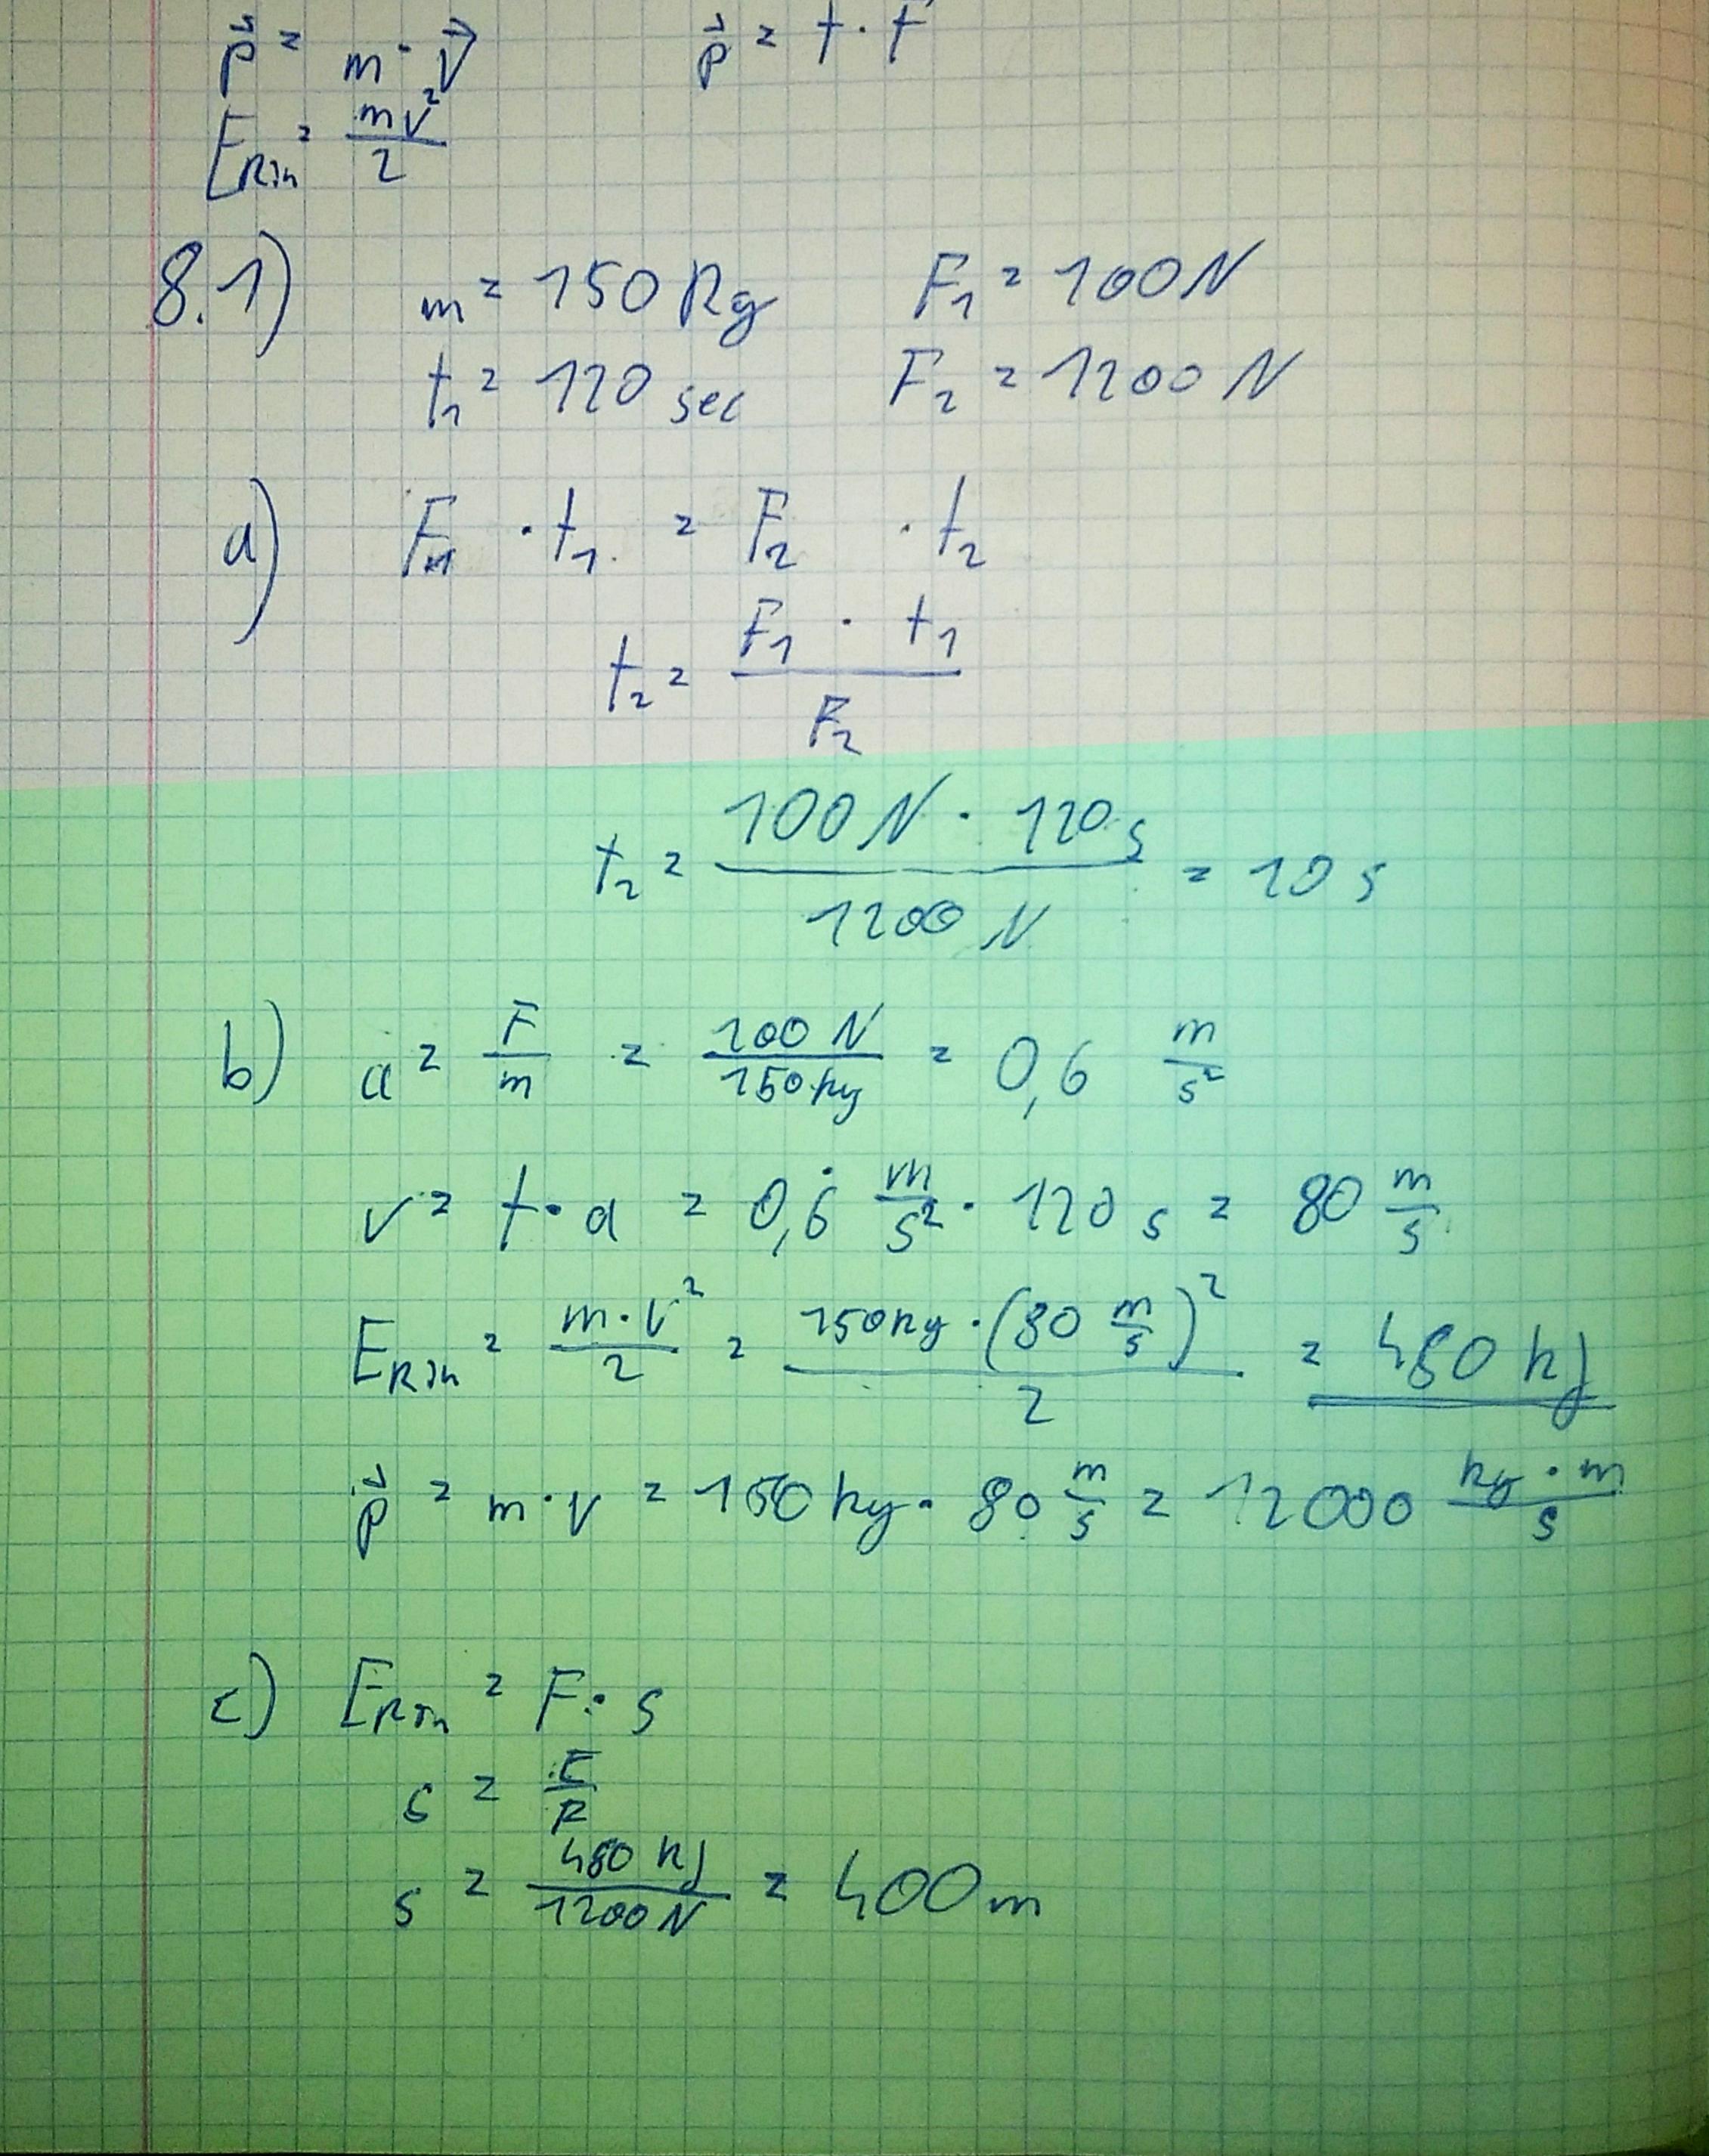 p⃗ = m · v⃗    p⃗ = t · F
E_kin = mv²/2
8.1) m = 150 kg    F₁ = 100 N
t₁ = 120 sec    F₂ = 1200 N
a) F₁ · t₁ = F₂ · t₂
t₂ = F₁ · t₁ / F₂
t₂ = 100 N · 120 s / 1200 N = 10 s
b) a = F/m = 100 N / 150 kg = 0,6 m/s²
v = t · a = 0,6̇ m/s² · 120 s = 80 m/s
E_kin = m · v² / 2 = 150 kg · (80 m/s)² / 2 = 480 kJ
p⃗ = m · v = 150 kg · 80 m/s = 12000 kg · m / s
c) E_kin = F · s
s = E/F
s = 480 kJ / 1200 N = 400 m